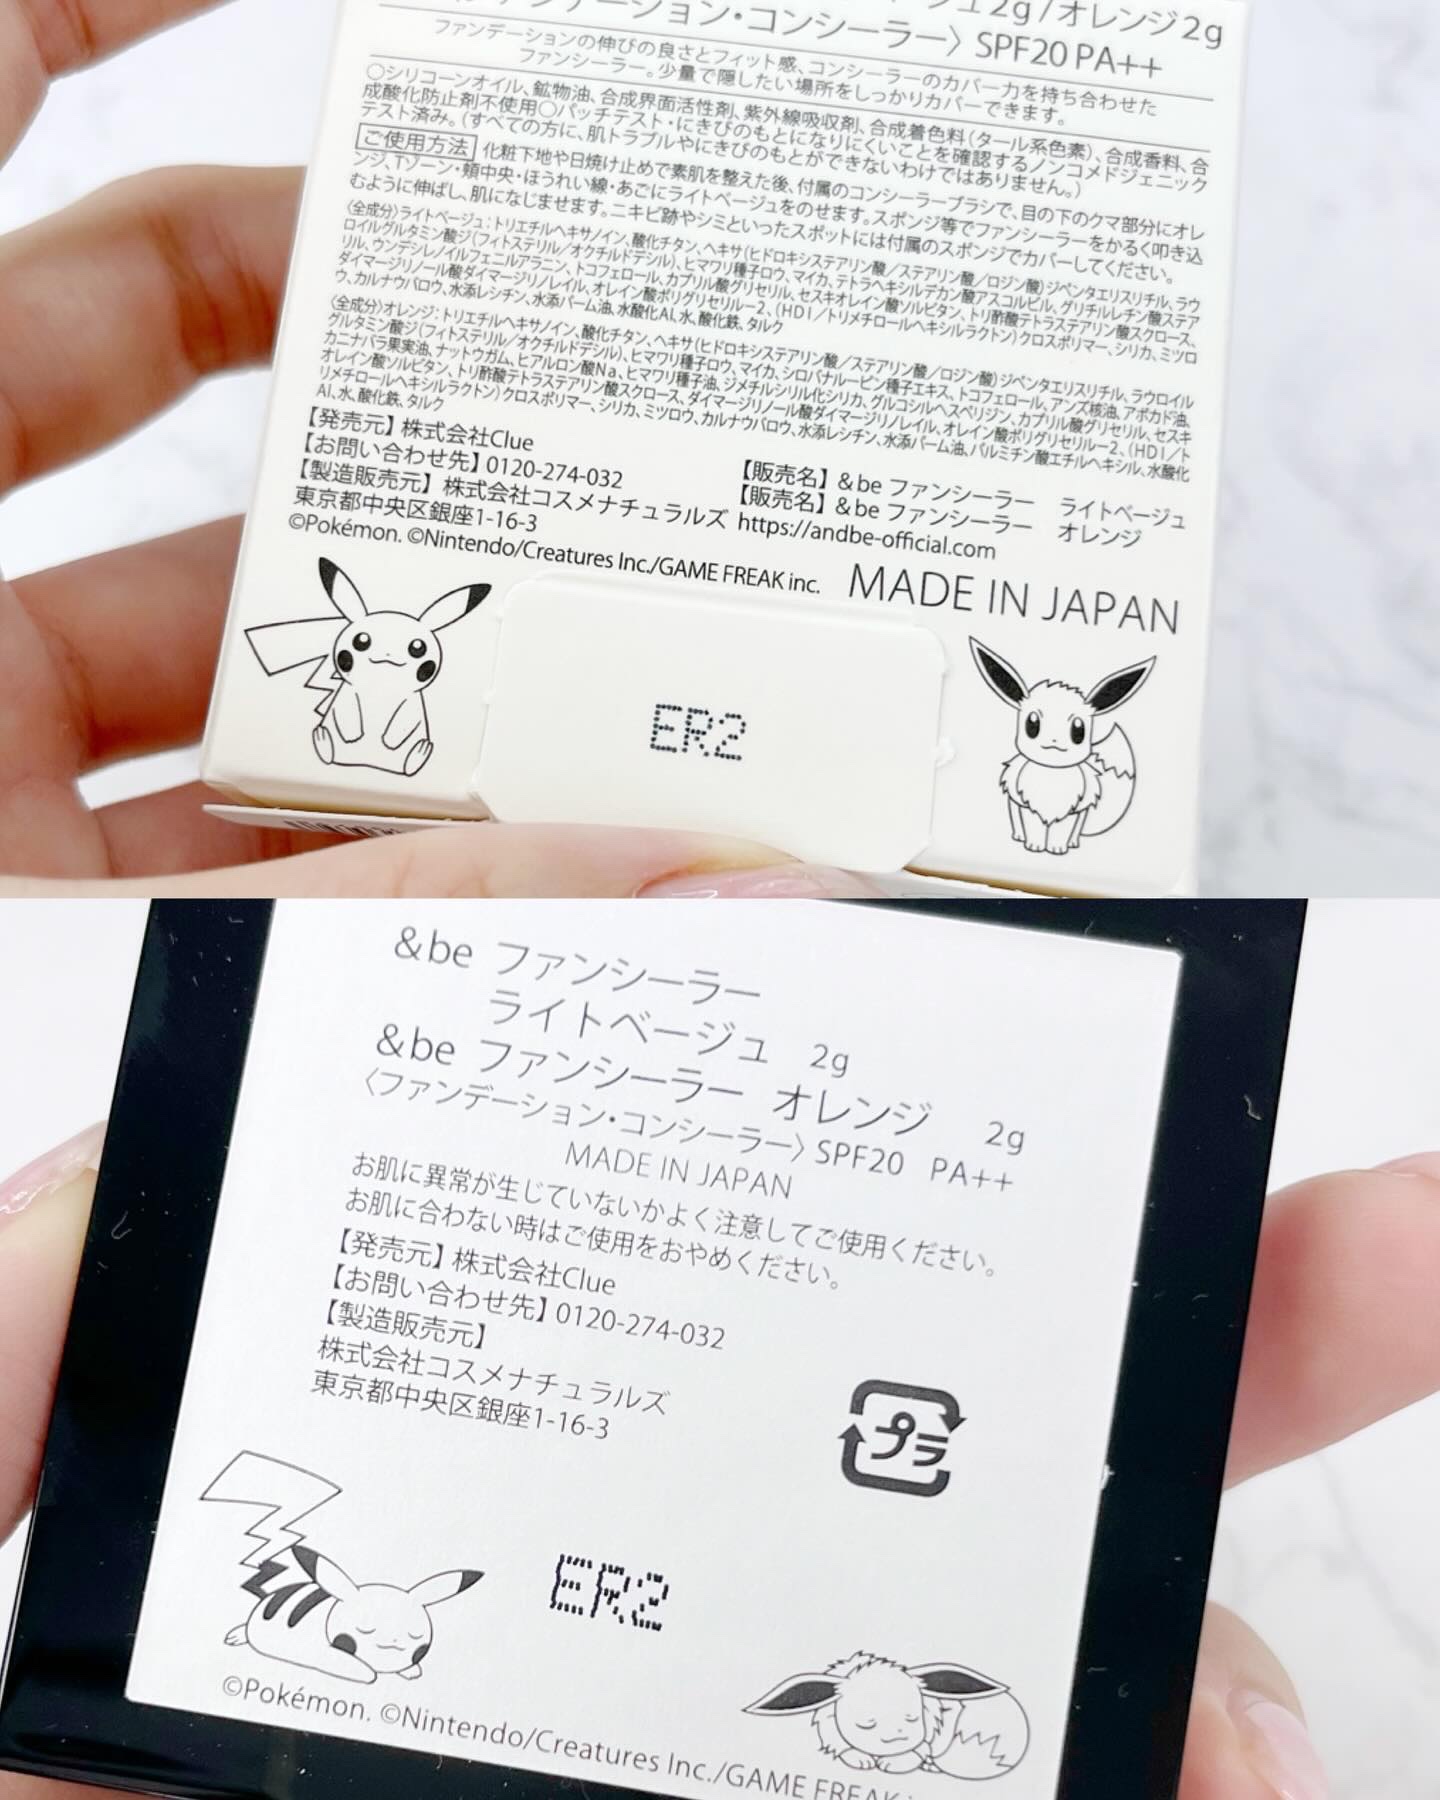 ュ2g/オレンジ2g
ンデーション・コンシーラー〉SPF20 PA++
ファンデーションの伸びの良さとフィット感、コンシーラーのカバー力を持ち合わせた
ファンシーラー。少量で隠したい場所をしっかりカバーできます。
○シリコーンオイル、鉱物油、合成界面活性剤、紫外線吸収剤、合成着色料(タール系色素)、合成香料、合
成酸化防止剤不使用○パッチテスト・にきびのもとになりにくいことを確認するノンコメドジェニック
テスト済み。(すべての方に、肌トラブルやにきびのもとができないわけではありません。)
ご使用方法 化粧下地や日焼け止めで素肌を整えた後、付属のコンシーラーブラシで、目の下のクマ部分にオレ
ンジ、Tゾーン・頬中央・ほうれい線・あごにライトベージュをのせます。スポンジ等でファンシーラーをかるく叩き込
むように伸ばし、肌になじませます。ニキビ跡やシミといったスポットには付属のスポンジでカバーしてください。
〈全成分〉ライトベージュ:トリエチルヘキサノイン、酸化チタン、ヘキサ(ヒドロキシステアリン酸/ステアリン酸/ロジン酸)ジペンタエリスリチル、ラウ
ロイルグルタミン酸ジ(フィトステリル/オクチルドデシル)、ヒマワリ種子ロウ、マイカ、テトラヘキシルデカン酸アスコルビル、グリチルレチン酸ステア
リル、ウンデシレノイルフェニルアラニン、トコフェロール、カプリル酸グリセリル、セスキオレイン酸ソルビタン、トリ酢酸テトラステアリン酸スクロース、
ダイマージリノール酸ダイマージリノレイル、オレイン酸ポリグリセリルー2、(HDI/トリメチロールヘキシルラクトン)クロスポリマー、シリカ、ミツロ
ウ、カルナウバロウ、水添レシチン、水添パーム油、水酸化Al、水、酸化鉄、タルク
〈全成分〉オレンジ:トリエチルヘキサノイン、酸化チタン、ヘキサ(ヒドロキシステアリン酸/ステアリン酸/ロジン酸)ジペンタエリスリチル、ラウロイル
グルタミン酸ジ(フィトステリル/オクチルドデシル)、ヒマワリ種子ロウ、マイカ、シロバナルーピン種子エキス、トコフェロール、アンズ核油、アボカド油、
カニナバラ果実油、ナットウガム、ヒアルロン酸Na、ヒマワリ種子油、ジメチルシリル化シリカ、グルコシルヘスペリジン、カプリル酸グリセリル、セスキ
オレイン酸ソルビタン、トリ酢酸テトラステアリン酸スクロース、ダイマージリノール酸ダイマージリノレイル、オレイン酸ポリグリセリルー2、(HDI/ト
リメチロールヘキシルラクトン)クロスポリマー、シリカ、ミツロウ、カルナウバロウ、水添レシチン、水添パーム油、パルミチン酸エチルヘキシル、水酸化
Al、水、酸化鉄、タルク
【発売元】株式会社Clue
【お問い合わせ先】0120-274-032
【製造販売元】株式会社コスメナチュラルズ
東京都中央区銀座1-16-3
【販売名】&be ファンシーラー ライトベージュ
【販売名】&be ファンシーラー オレンジ
https://andbe-official.com
©Pokémon. ©Nintendo/Creatures Inc./GAME FREAK inc.
MADE IN JAPAN
ER2
&be ファンシーラー
ライトベージュ 2g
&be ファンシーラー オレンジ 2g
〈ファンデーション・コンシーラー〉SPF20 PA++
MADE IN JAPAN
お肌に異常が生じていないかよく注意してご使用ください。
お肌に合わない時はご使用をおやめください。
【発売元】株式会社Clue
【お問い合わせ先】0120-274-032
【製造販売元】
株式会社コスメナチュラルズ
東京都中央区銀座1-16-3
プラ
ER2
©Pokémon. ©Nintendo/Creatures Inc./GAME FREAK